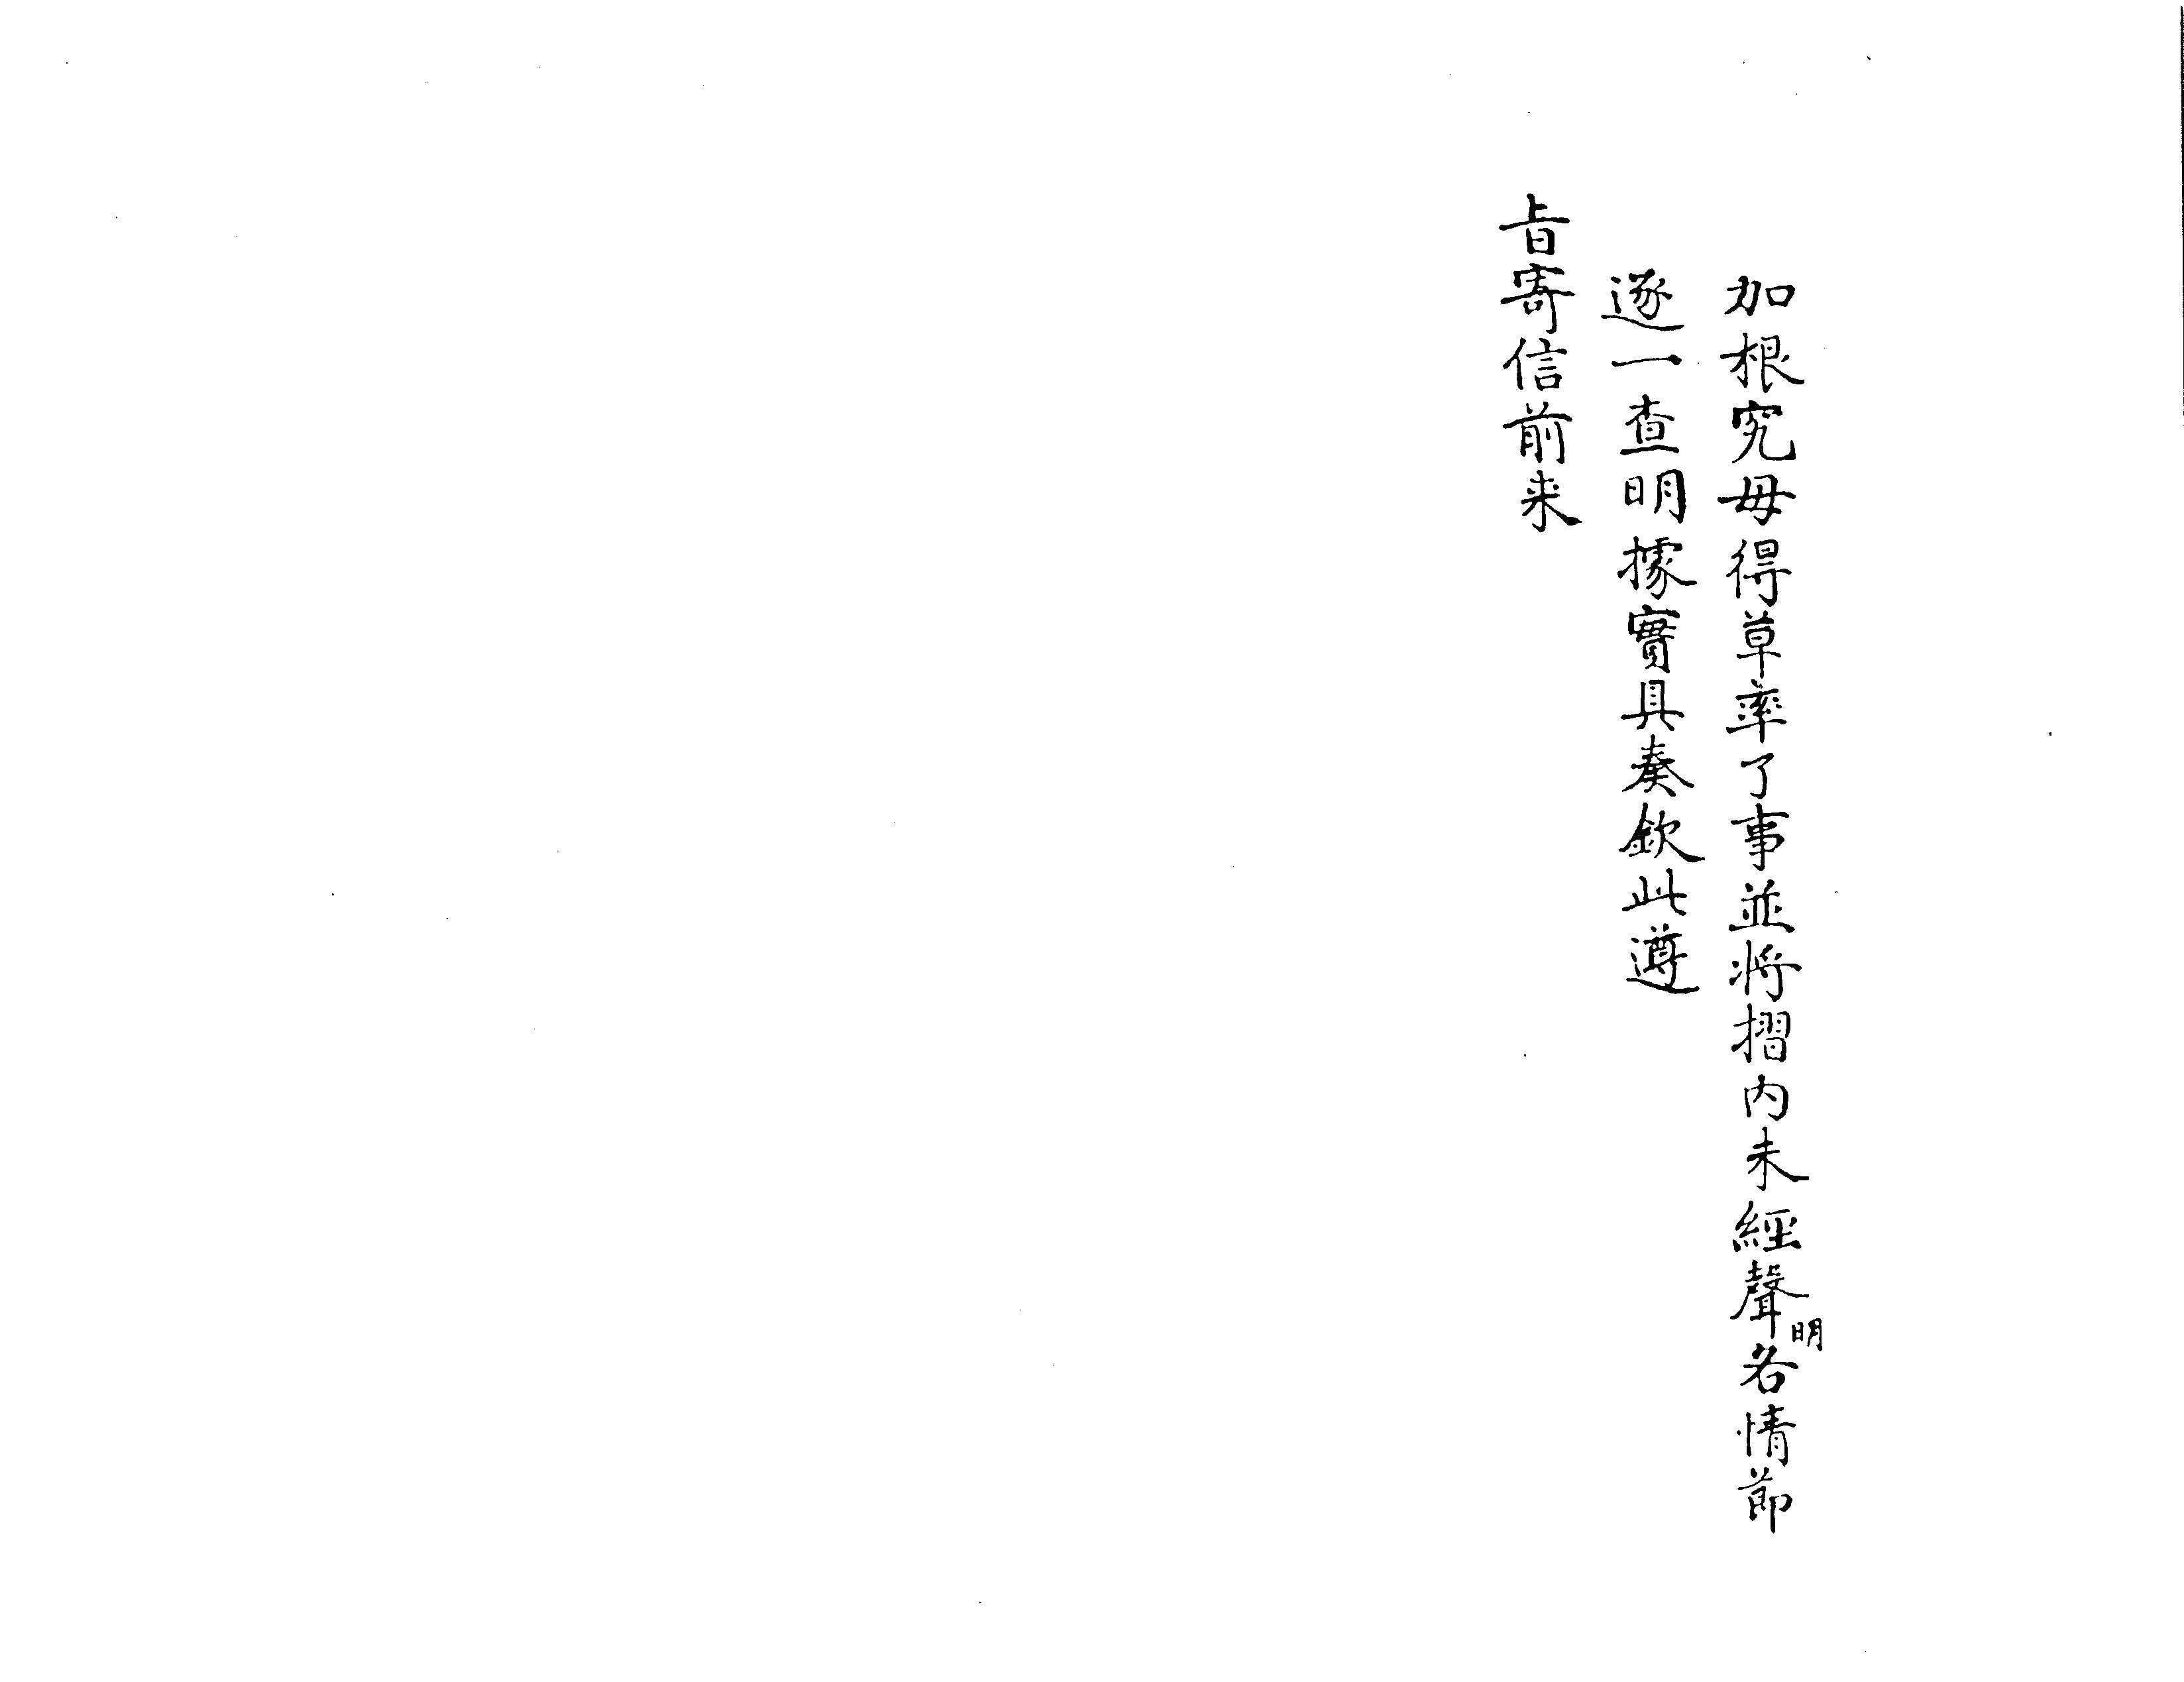 加根究毋得草率了事並将摺内未經聲明各情節
逐一查明據實具奏欽此遵
旨寄信前来